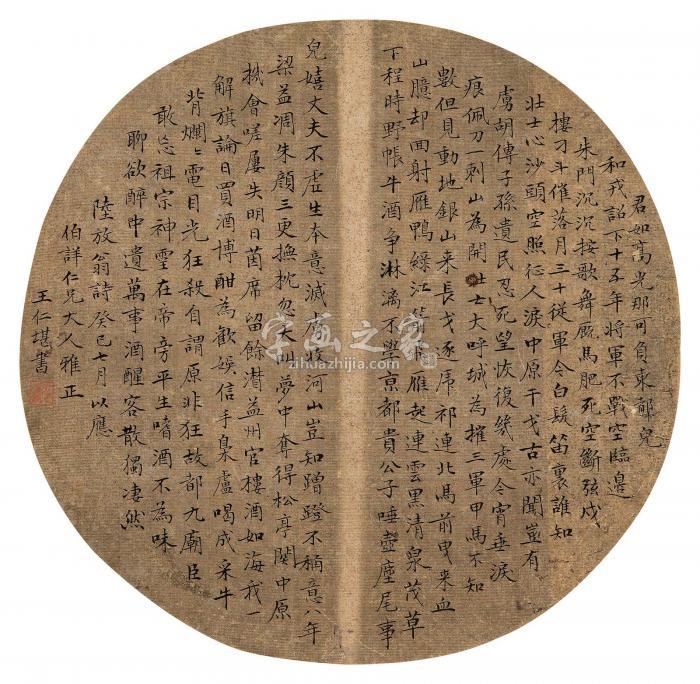 君如高光那可負東都兒
和戎詔下十五年將軍不戰空臨邊
朱門沉沉按歌舞廄馬肥死空斷弦戍
樓刁斗催落月三十從軍今白髮笛裏誰知
壯士心沙頭空照征人淚中原干戈古亦聞豈有
虜胡傳子孫遺民忍死望恢復幾處今宵垂淚
痕佩刀一刺山為開壯士大呼城為摧三軍甲馬不知
數但見動地銀山来長戈逐虎祁連北馬前曳来血
丹臆却回射雁鴨綠江箭飛雁起連雲黑清泉茂草
下程時野帳牛酒爭淋漓不學京都貴公子唾壺麈尾事
兒嬉丈夫不虛生本意滅虜收河山豈知蹭蹬不稱意八年
梁益凋朱顏三更撫枕忽大叫夢中奪得松亭關中原
機會嗟屢失明日茵席留餘潸益州官樓酒如海我一
解旗論日買酒博酣為歡娛信手梟盧喝成采牛
背爛〻電目光狂殺自謂原非狂故都九廟臣
敢忘祖宗神靈在帝旁平生嗜酒不為味
聊欲醉中遺萬事酒醒客散獨凄然
陸放翁詩癸巳七月以應
伯詳仁兄大人雅正
王仁堪書
字画之家
zihuazhijia.com